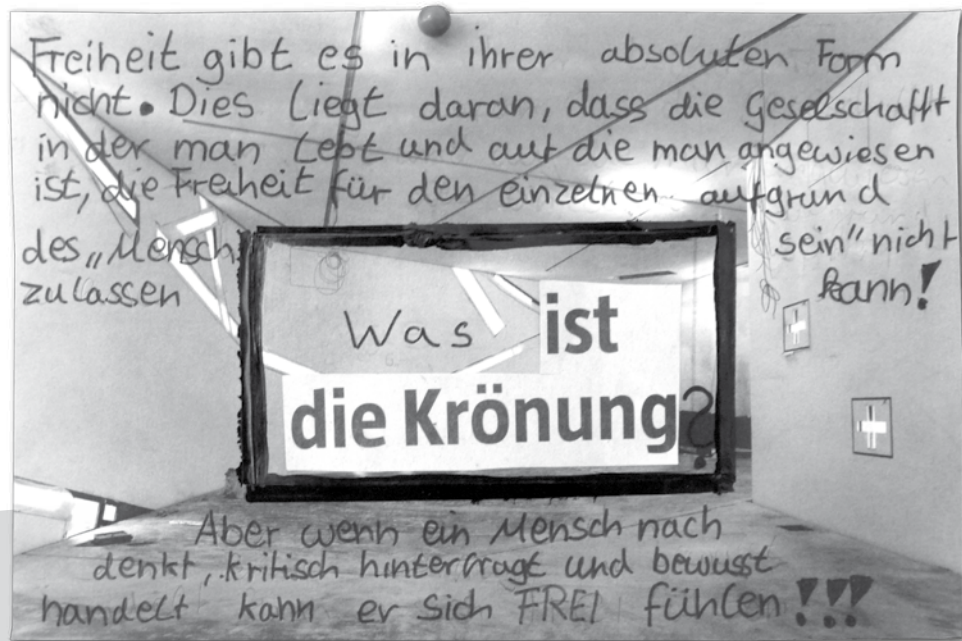 Freiheit gibt es in ihrer absoluten Form
nicht. Dies liegt daran, dass die Geselschafft
in der man lebt und auf die man angewiesen
ist, die Freiheit für den einzelnen aufgrund
des „Mensch sein" nicht
zulassen kann!
Was ist
die Krönung?
Aber wenn ein Mensch nach
denkt, kritisch hinterfragt und bewusst
handelt kann er sich FREI fühlen!!!